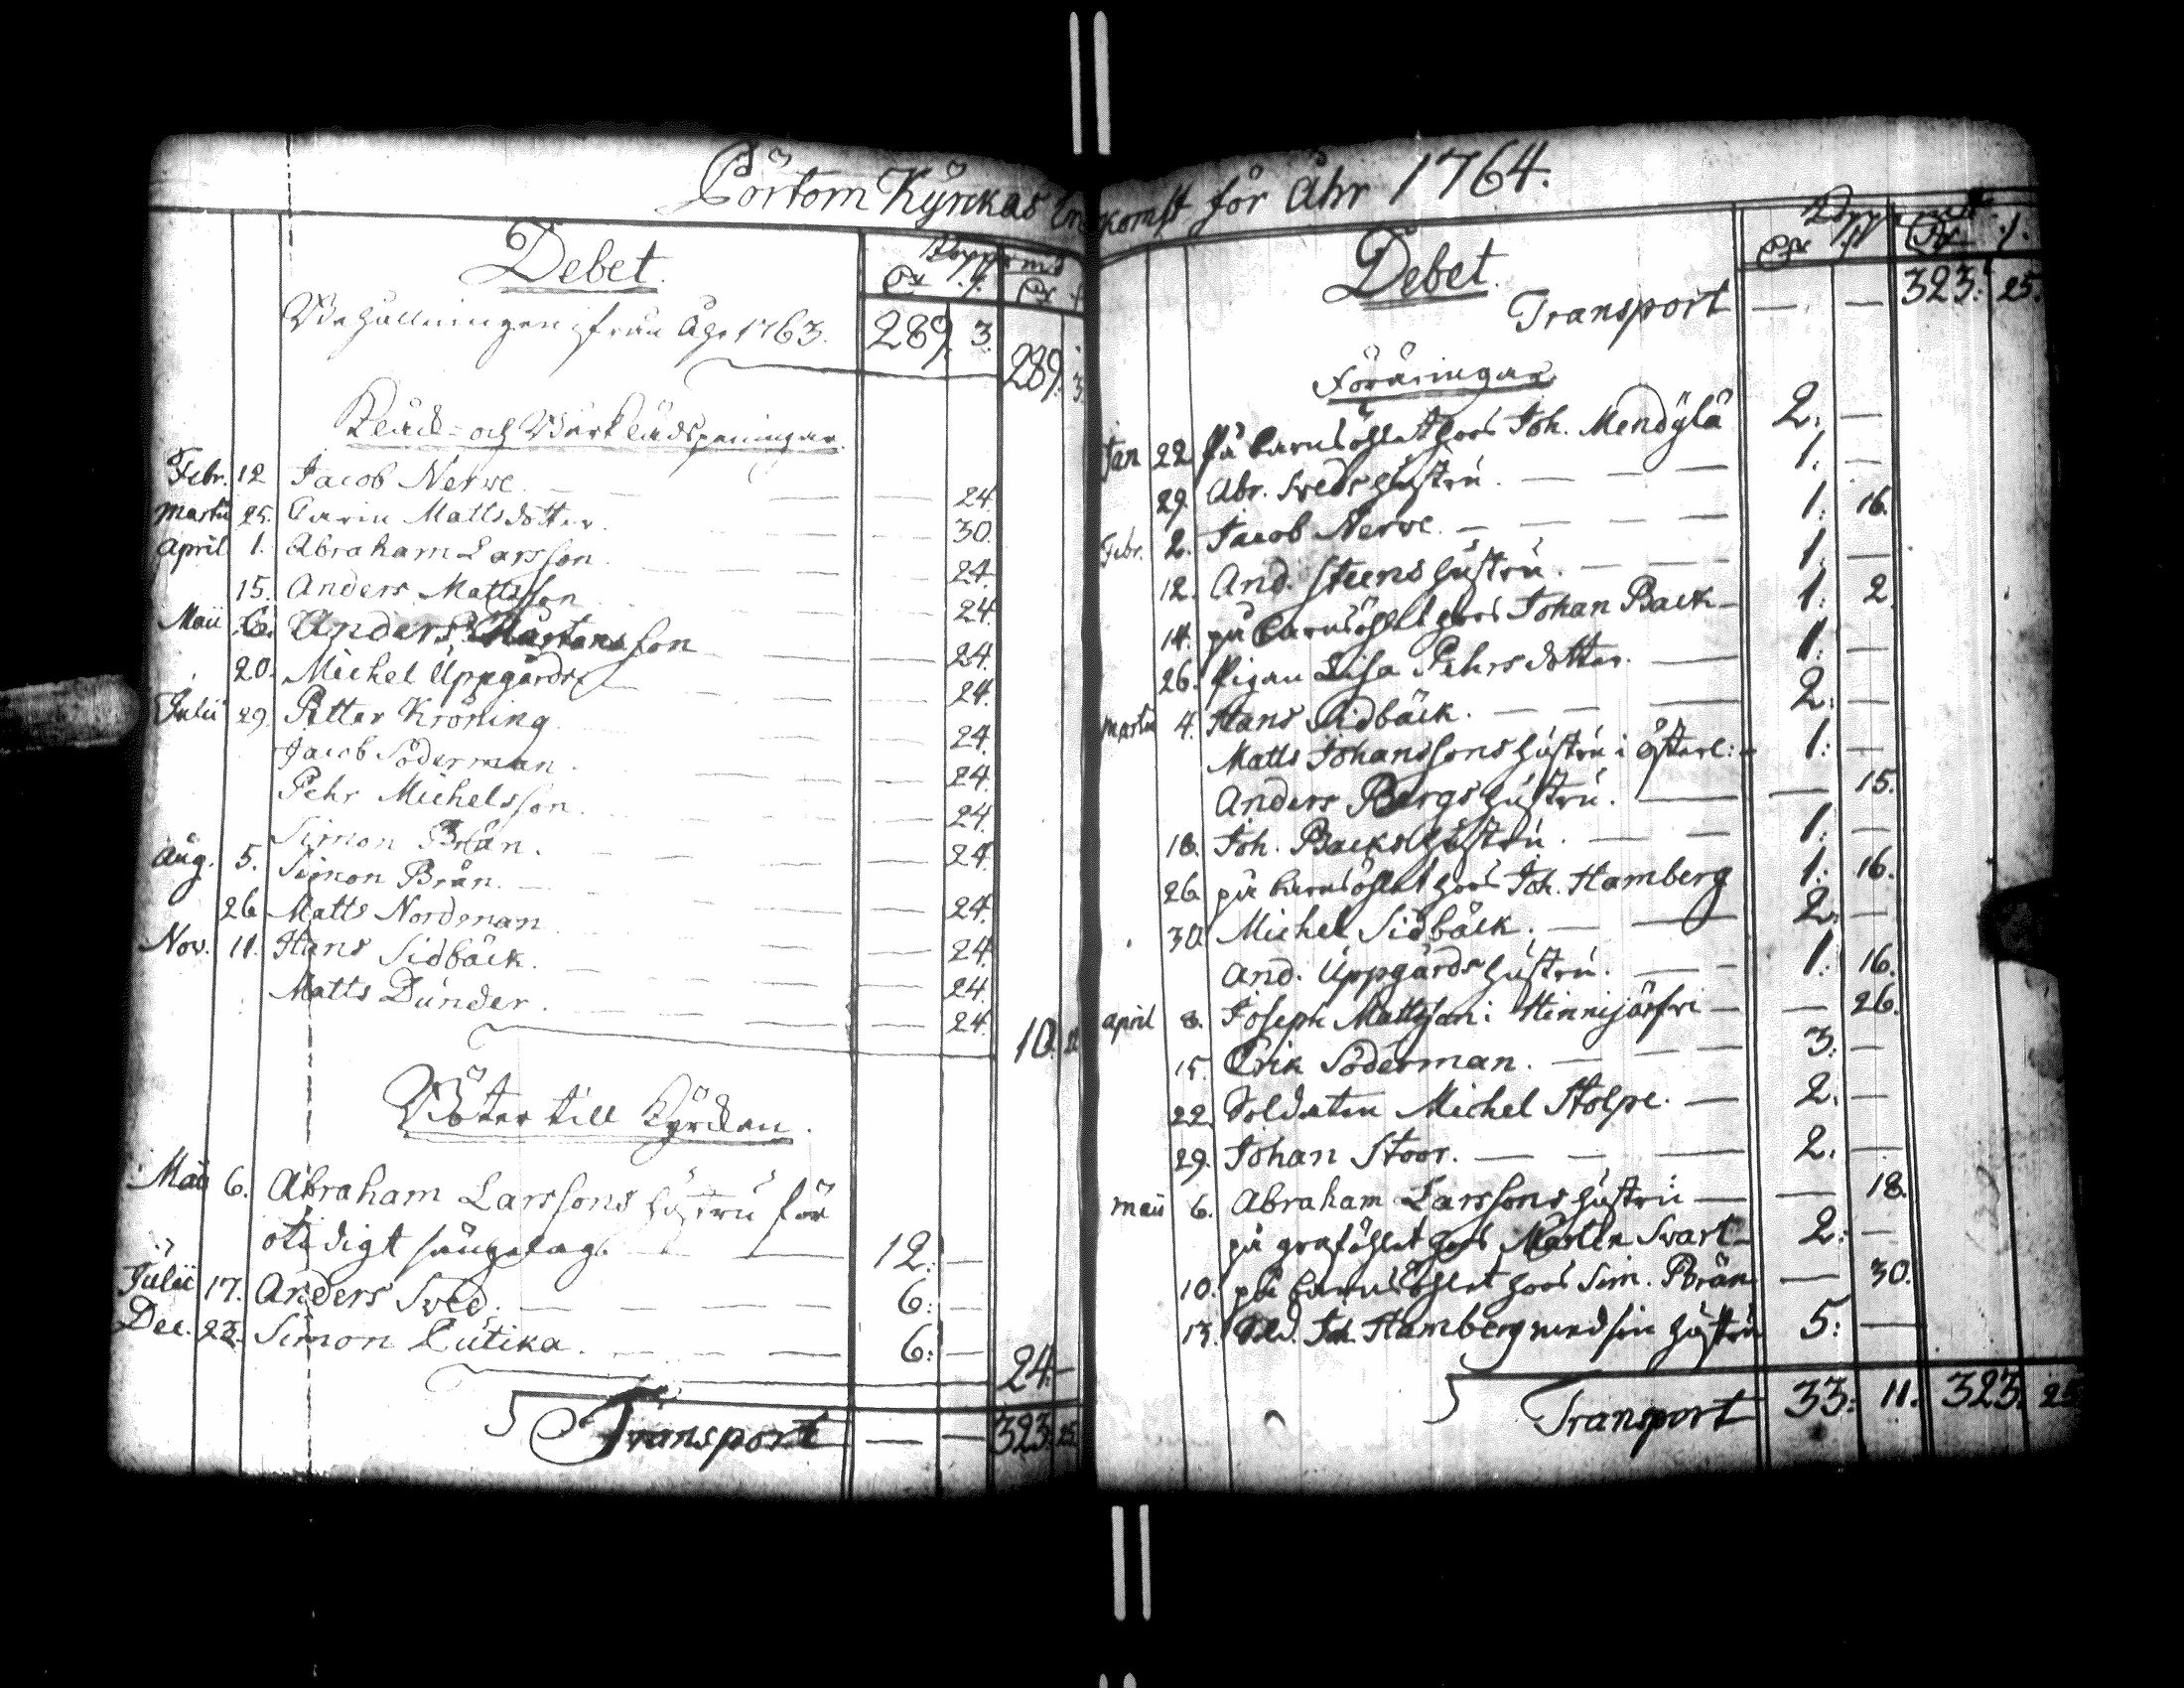 Pörtom Kÿrkas Inkomst för Åhr 1764.
Debet.
Kopp. mt
Behållningen ifrån Åhr 1763. 289. 3.
289. 3.
Kläd- och Wärklädspenningar.
Febr. 12 Jacob Nerwe. — — — 24.
Martii 25. Carin Mattsdotter. — — 30.
April 1. Abraham Larsson. — — — 24.
15. Anders Mattsson — — 24.
Maii 6. Anders Mårtensson — — 24.
20. Michel Uppgårds — — — 24.
Julii 29. Petter Kröning — — 24.
Jacob Söderman. — — 24.
Pehr Michelsson. — — 24.
Simon Brån. — — — 24.
Aug. 5. Simon Brån. — — — 24.
26. Matts Nordman — — 24.
Nov. 11. Hans Sidbäck. — — — 24.
Matts Dunder. — — — 24.
10.
Böter till Kÿrckan.
Maii 6. Abraham Larssons hustru för
otidigt sängelag. — — 12: —
Julii 17. Anders Sved. — — — 6: —
Dec. 23. Simon Lutika. — — — 6: —
24: —
Transport — — 323: 25.
Debet.
Kopp. mt
Transport — — 323: 25.
Föräringar
Jan 22. På barnsöhlet hoos Joh. Mendÿlä 2: —
29. Abr. Sveds hustru. — — — 1: —
Febr. 2. Jacob Nerwe. — — — 1: 16.
12. And. Steens hustru. — — 1: —
14. på barnsöhlet hoos Johan Back — 1: 2.
26. Pigan Lisa Pehrsdotter. — 1: —
Martii 4. Hans Sidbäck. — — — 2: —
Matts Johanssons hustru i Österl: 1: —
Anders Bergs hustru. — — 15.
18. Joh. Backs hustru. — — 1: —
26. på barnsöhlet hoos Joh. Hamberg 1: 16.
30. Michel Sidbäck. — — 2: —
And. Uppgårds hustru. — — 1: 16.
April 8. Joseph Mattsson i Hinnijärfwi — — 26.
15. Erik Söderman. — — — 3: —
22. Soldaten Michel Stolpe. — 2: —
29. Johan Stoor. — — — 2: —
Maii 6. Abraham Larssons hustru — — 18.
på graföhlet hoos Mårten Svart — 2: —
10. på barnsöhlet hoos Sim. Brån — 30.
13. Sold. Joh. Hamberg med sin hustru 5: —
Transport 33: 11. 323: 25.